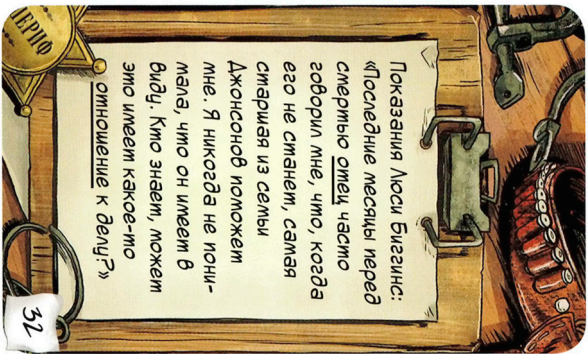 Показания Люси Биггинс:
«Последние месяцы перед
смертью отец часто
говорил мне, что, когда
его не станет, самая
старшая из семьи
Джонсонов поможет
мне. Я никогда не пони-
мала, что он имеет в
виду. Кто знает, может
это имеет какое-то
отношение к делу?»
32